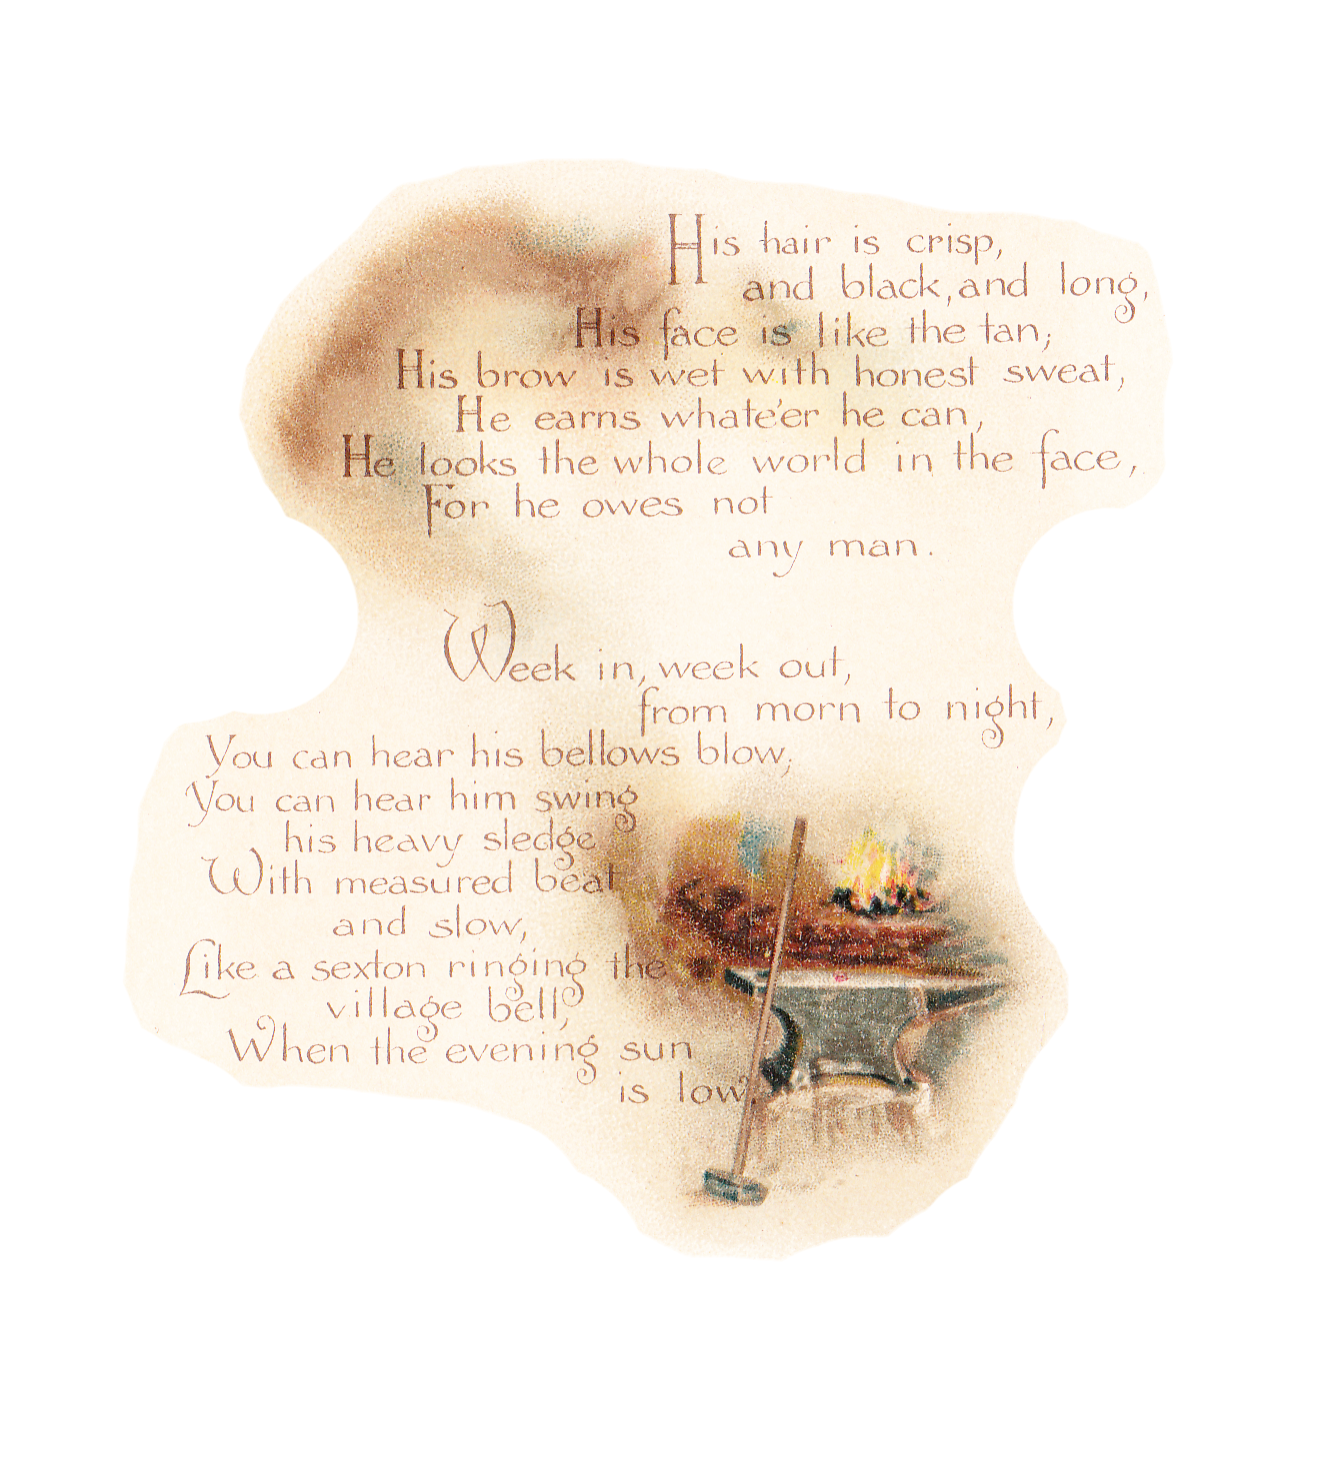 His hair is crisp,
and black, and long,
His face is like the tan;
His brow is wet with honest sweat,
He earns whate'er he can,
He looks the whole world in the face,
For he owes not
any man.
Week in, week out,
from morn to night,
You can hear his bellows blow;
You can hear him swing
his heavy sledge
With measured beat
and slow,
Like a sexton ringing the
village bell,
When the evening sun
is low.